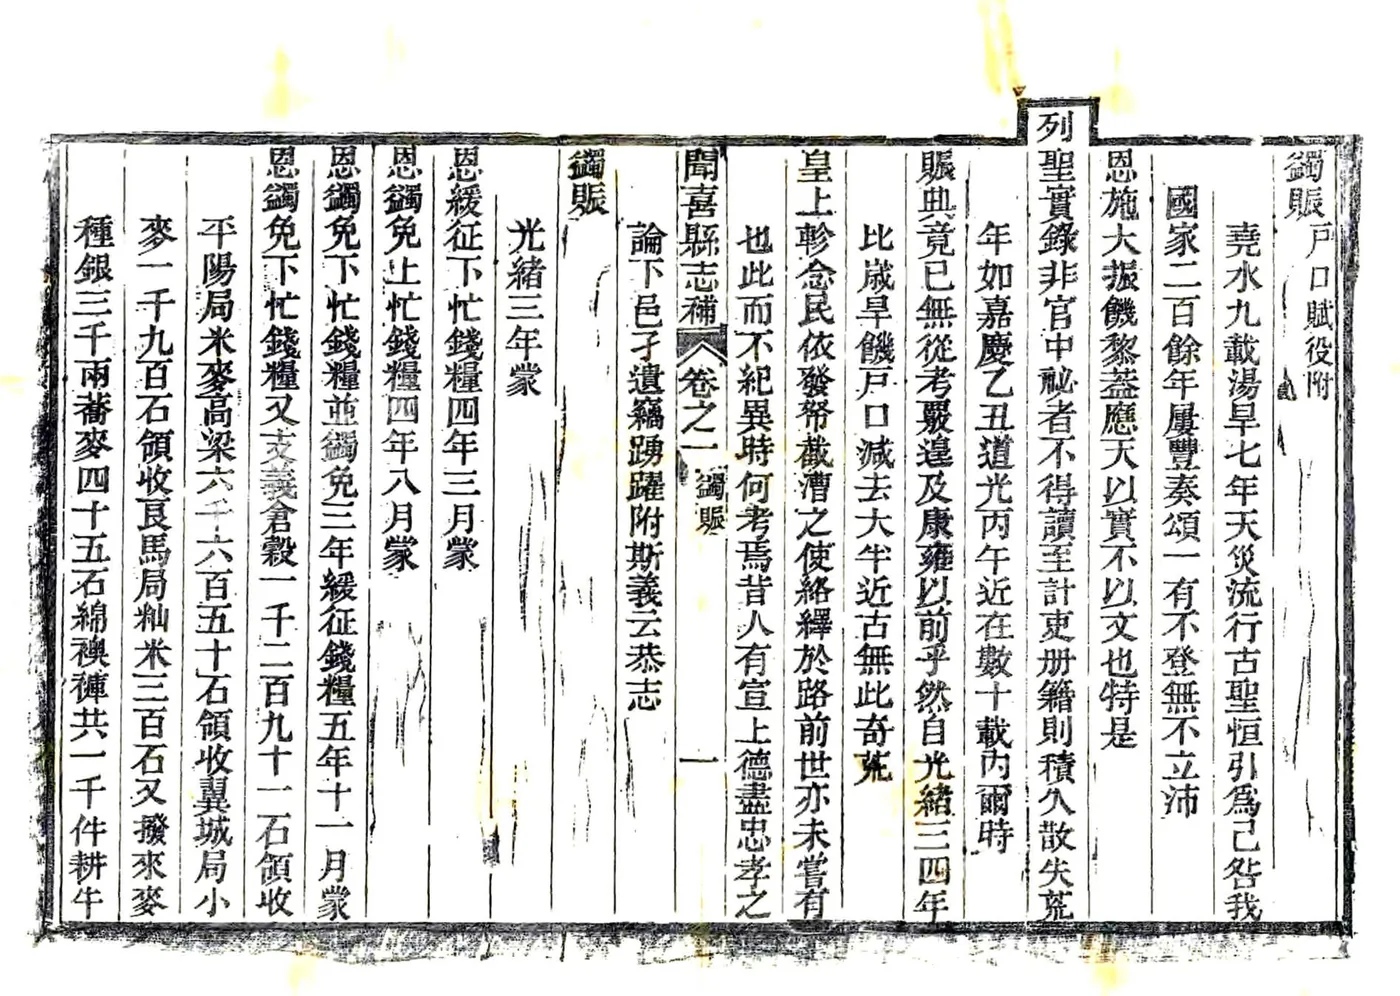 蠲賑戶口賦役附
堯水九載湯旱七年天災流行古聖恒引爲己咎我
國家二百餘年屢豐奏頌一有不登無不立沛
恩施大振饑黎蓋應天以實不以文也特是
列聖實錄非官中祕者不得讀至計吏册籍則積久散失荒
年如嘉慶乙丑道光丙午近在數十載內爾時
賑典竟已無從考覈遑及康雍以前乎然自光緒三四年
比歲旱饑戶口減去大半近古無此奇荒
皇上軫念民依發帑截漕之使絡繹於路前世亦未嘗有
也此而不紀異時何考焉昔人有宣上德盡忠孝之
聞喜縣志補 卷之一 蠲賑 一
論下邑孑遺竊踴躍附斯義云恭志
蠲賑
光緒三年蒙
恩緩征下忙錢糧四年三月蒙
恩蠲免上忙錢糧四年八月蒙
恩蠲免下忙錢糧並蠲免三年緩征錢糧五年十一月蒙
恩蠲免下忙錢糧又支義倉穀一千二百九十一石領收
平陽局米麥高梁六千六百五十石領收翼城局小
麥一千九百石領收艮馬局籼米三百石又撥來麥
種銀三千兩蕎麥四十五石綿襖褲共一千件耕牛